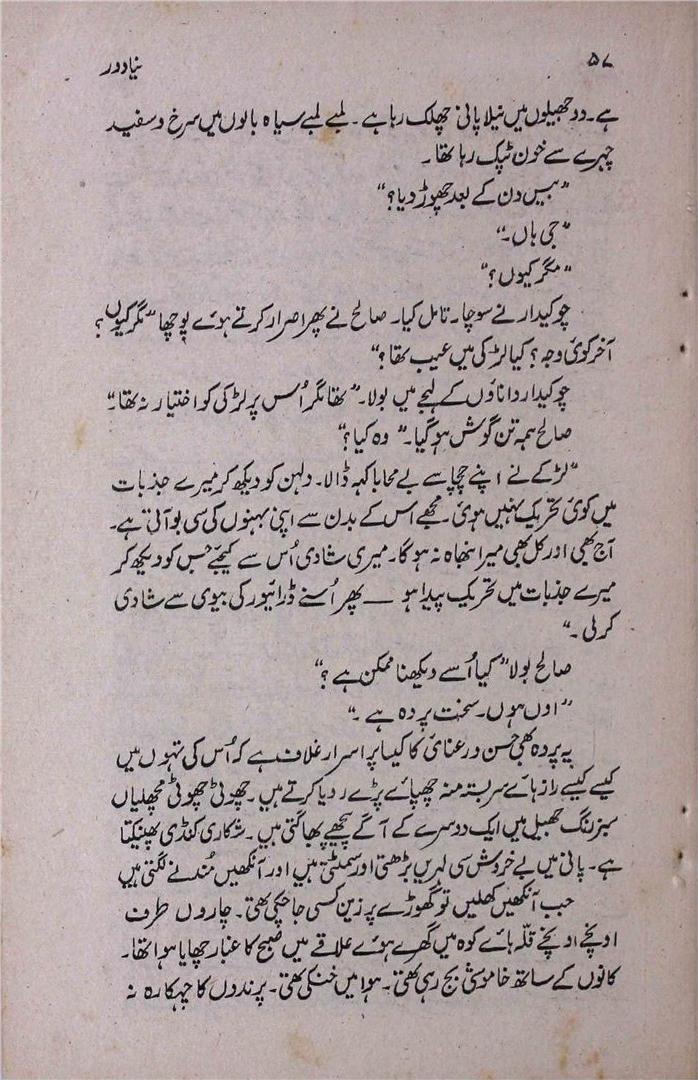 ۵۷
نیا دور
ہے۔ دو جھیلوں میں نیلا پانی چھلک رہا ہے۔ لمبے لمبے سیاہ بالوں میں سرخ و سفید
چہرے سے خون ٹپک رہا تھا۔
"بیس دن کے بعد چھوڑ دیا؟"
"جی ہاں۔"
"مگر کیوں؟"
چوکیدار نے سوچا۔ تامل کیا۔ صالح نے پھر اصرار کرتے ہوئے پوچھا "مگر کیوں؟
آخر کوئی وجہ؟ کیا لڑکی میں عیب تھا؟"
چوکیدار داناؤں کے لہجے میں بولا۔ "تھا مگر اُس پر لڑکی کو اختیار نہ تھا۔"
صالح ہمہ تن گوش ہو گیا۔ "وہ کیا؟"
"لڑکے نے اپنے چچا سے بے محابا کہہ ڈالا۔ دلہن کو دیکھ کر میرے جذبات
میں کوئی تحریک نہیں ہوئی۔ مجھے اس کے بدن سے اپنی بہنوں کی سی بو آتی ہے۔
آج بھی اور کل بھی میرا نبھاہ نہ ہو گا۔ میری شادی اُس سے کیجیے جس کو دیکھ کر
میرے جذبات میں تحریک پیدا ہو — پھر اُسنے ڈرائیور کی بیوی سے شادی
کر لی۔"
صالح بولا "کیا اُسے دیکھنا ممکن ہے؟"
"اوں ہوں۔ سخت پردہ ہے۔"
یہ پردہ بھی حسن و رعنائی کا کیسا پر اسرار غلاف ہے کہ اُس کی تہوں میں
کیسے کیسے راز ہائے سربستہ منہ چھپائے پڑے رہا کرتے ہیں۔ چھوٹی چھوٹی مچھلیاں
سبز رنگ جھیل میں ایک دوسرے کے آگے پیچھے بھاگتی ہیں۔ شکاری کنڈی پھینکتا
ہے۔ پانی میں بے خروش سی لہریں بڑھتی اور سمٹتی ہیں اور آنکھیں مُندنے لگتی ہیں
جب آنکھیں کھلیں تو گھوڑے پر زین کسی جا چکی تھی۔ چاروں طرف
اونچے اونچے قلّہ ہائے کوہ میں گھرے ہوئے علاقے میں صبح کا غبار چھایا ہوا تھا۔
کانوں کے ساتھ خاموشی بج رہی تھی۔ ہوا میں خنکی تھی۔ پرندوں کا چہکارہ نہ